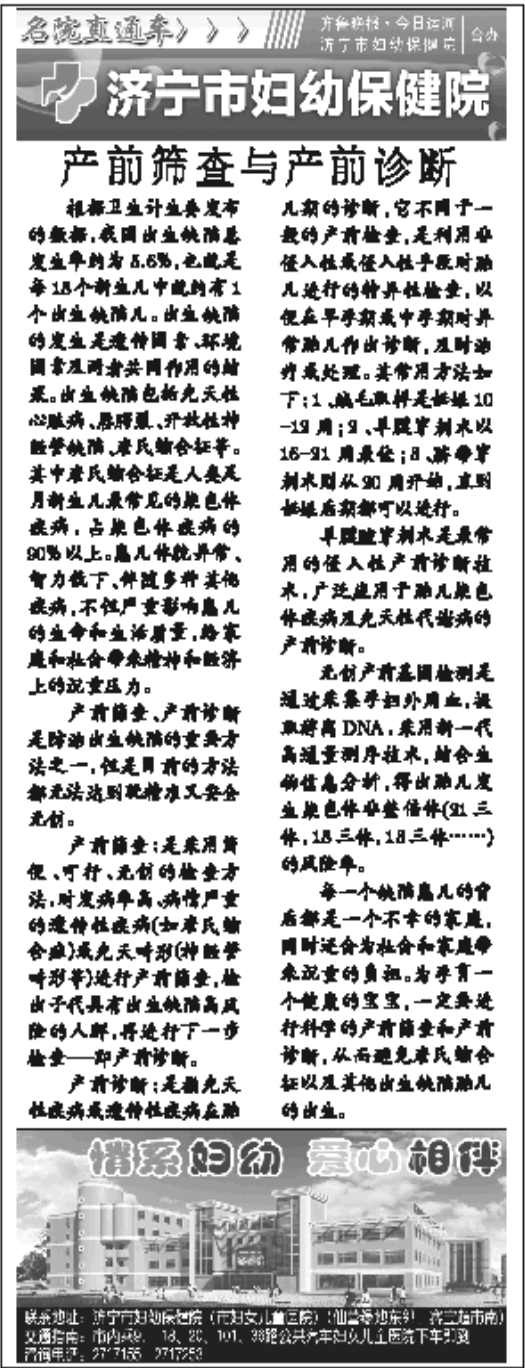 名院直通车》》》
齐鲁晚报·今日运河
济宁市妇幼保健院
合办
济宁市妇幼保健院
产前筛查与产前诊断
根据卫生计生委发布
的数据,我国出生缺陷总
发生率约为5.6%,也就是
每18个新生儿中就约有1
个出生缺陷儿。出生缺陷
的发生是遗传因素、环境
因素及两者共同作用的结
果。出生缺陷包括先天性
心脏病、唇腭裂、开放性神
经管缺陷、唐氏综合征等。
其中唐氏综合征是人类足
月新生儿最常见的染色体
疾病,占染色体疾病的
90%以上。患儿体貌异常、
智力低下、伴随多种其他
疾病,不但严重影响患儿
的生命和生活质量,给家
庭和社会带来精神和经济
上的沉重压力。
产前筛查、产前诊断
是防治出生缺陷的重要方
法之一,但是目前的方法
都无法达到既精准又安全
无创。
产前筛查:是采用简
便、可行、无创的检查方
法,对发病率高、病情严重
的遗传性疾病(如唐氏综
合症)或先天畸形(神经管
畸形等)进行产前筛查,检
出子代具有出生缺陷高风
险的人群,再进行下一步
检查——即产前诊断。
产前诊断:是指先天
性疾病或遗传性疾病在胎
儿期的诊断,它不同于一
般的产前检查,是利用非
侵入性或侵入性手段对胎
儿进行的特异性检查,以
便在早孕期或中孕期对异
常胎儿作出诊断,及时治
疗或处理。其常用方法如
下:1、绒毛取样是妊娠10
-12周;2、羊膜穿刺术以
16-21周最佳;3、脐带穿
刺术则从20周开始,直到
妊娠后期都可以进行。
羊膜腔穿刺术是最常
用的侵入性产前诊断技
术,广泛应用于胎儿染色
体疾病及先天性代谢病的
产前诊断。
无创产前基因检测是
通过采集孕妇外周血,提
取游离DNA,采用新一代
高通量测序技术,结合生
物信息分析,得出胎儿发
生染色体非整倍体(21三
体,18三体,13三体……)
的风险率。
每一个缺陷患儿的背
后都是一个不幸的家庭,
同时还会为社会和家庭带
来沉重的负担。为孕育一
个健康的宝宝,一定要进
行科学的产前筛查和产前
诊断,从而避免唐氏综合
征以及其他出生缺陷胎儿
的出生。
情系妇幼 爱心相伴
联系地址:济宁市妇幼保健院(市妇女儿童医院)(仙营绿地东邻 宾宝超市南)
交通指南:市内乘9、18、20、101、36路公共汽车妇女儿童医院下车即到
咨询电话:2717155 2717253